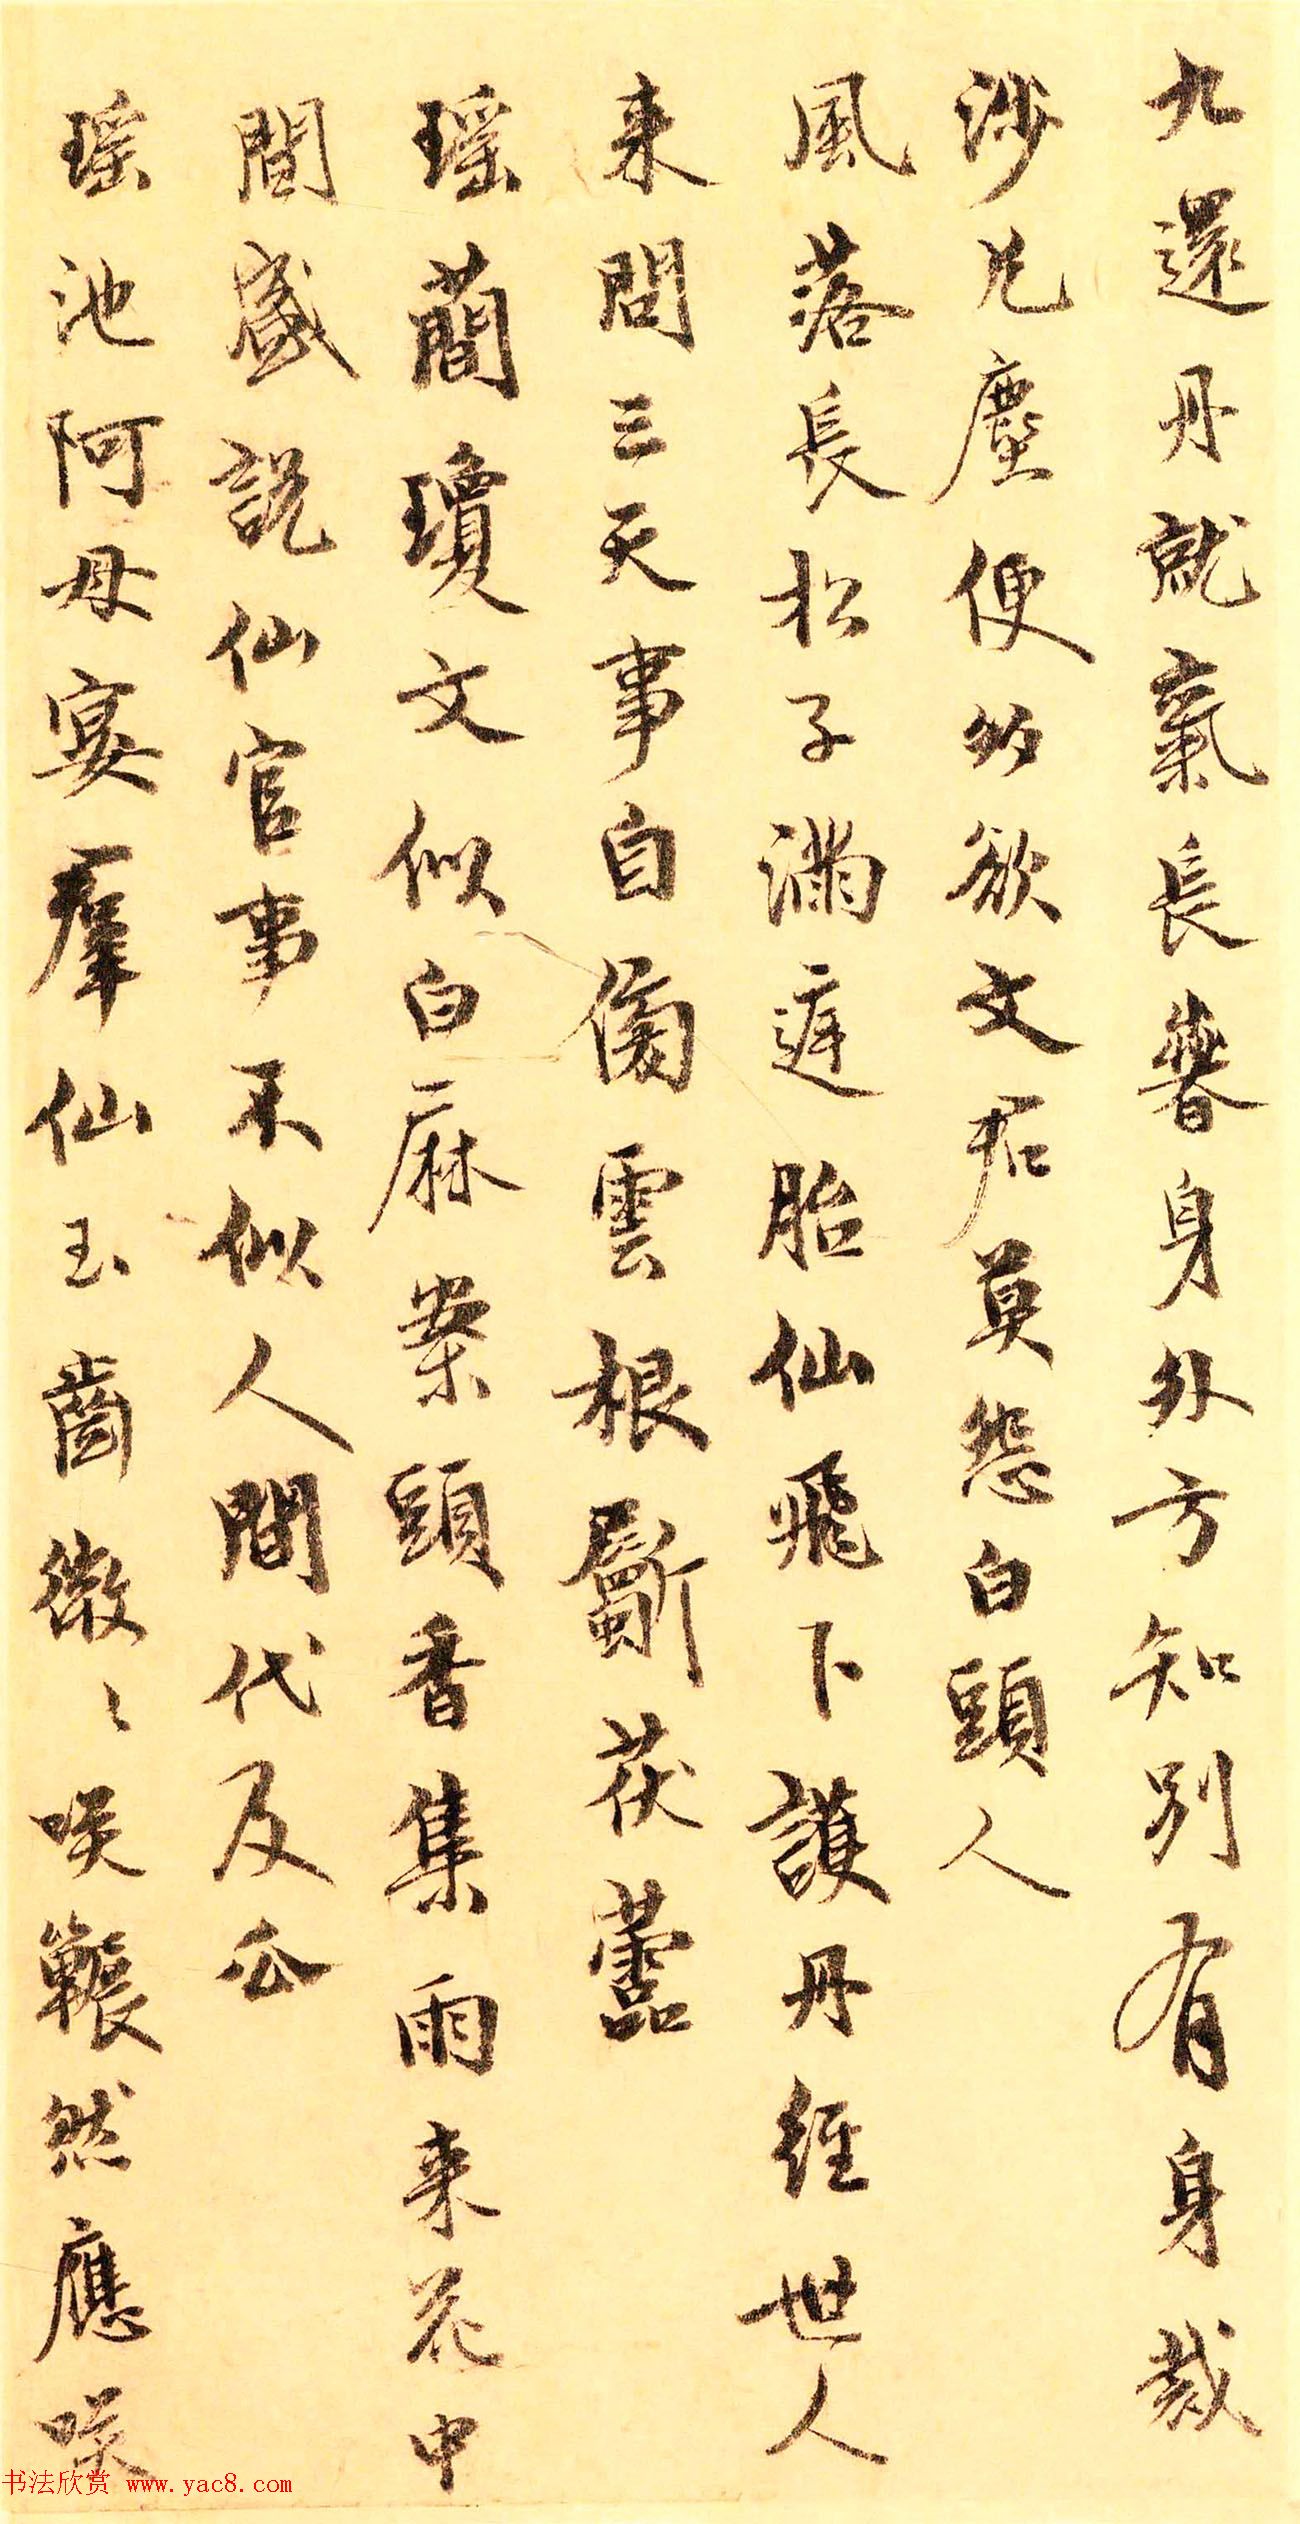 九還丹就氣長春身外方知別有身裁
涉凡塵便多欲文君莫怨白頭人
風落長松子滿庭胎仙飛下護丹經世人
来問三天事自斸雲根斸茯蕾
瑶蕳瓊文似白麻案頭香集雨来花中
間盛説仙官事不似人間代及瓜
瑶池阿母宴羣仙玉齒微〻咲囅然應咲
书法欣赏 www.yac8.com